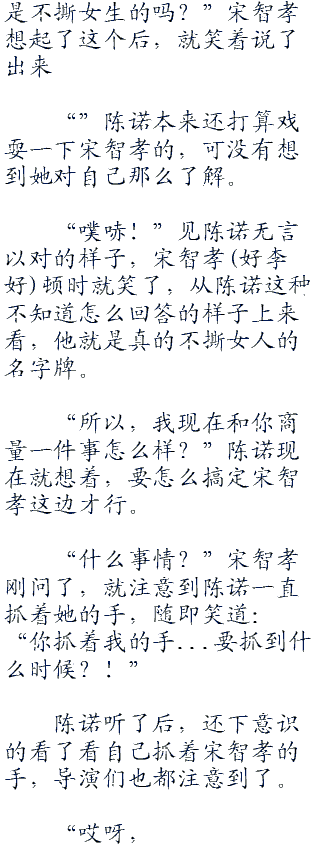 是不撕女生的吗？”宋智孝
想起了这个后，就笑着说了
出来
“”陈诺本来还打算戏
耍一下宋智孝的，可没有想
到她对自己那么了解。
“噗哧！”见陈诺无言
以对的样子，宋智孝(好李
好)顿时就笑了，从陈诺这种
不知道怎么回答的样子上来
看，他就是真的不撕女人的
名字牌。
“所以，我现在和你商
量一件事怎么样？”陈诺现
在就想着，要怎么搞定宋智
孝这边才行。
“什么事情？”宋智孝
刚问了，就注意到陈诺一直
抓着她的手，随即笑道：
“你抓着我的手...要抓到什
么时候？！”
陈诺听了后，还下意识
的看了看自己抓着宋智孝的
手，导演们也都注意到了。
“哎呀，